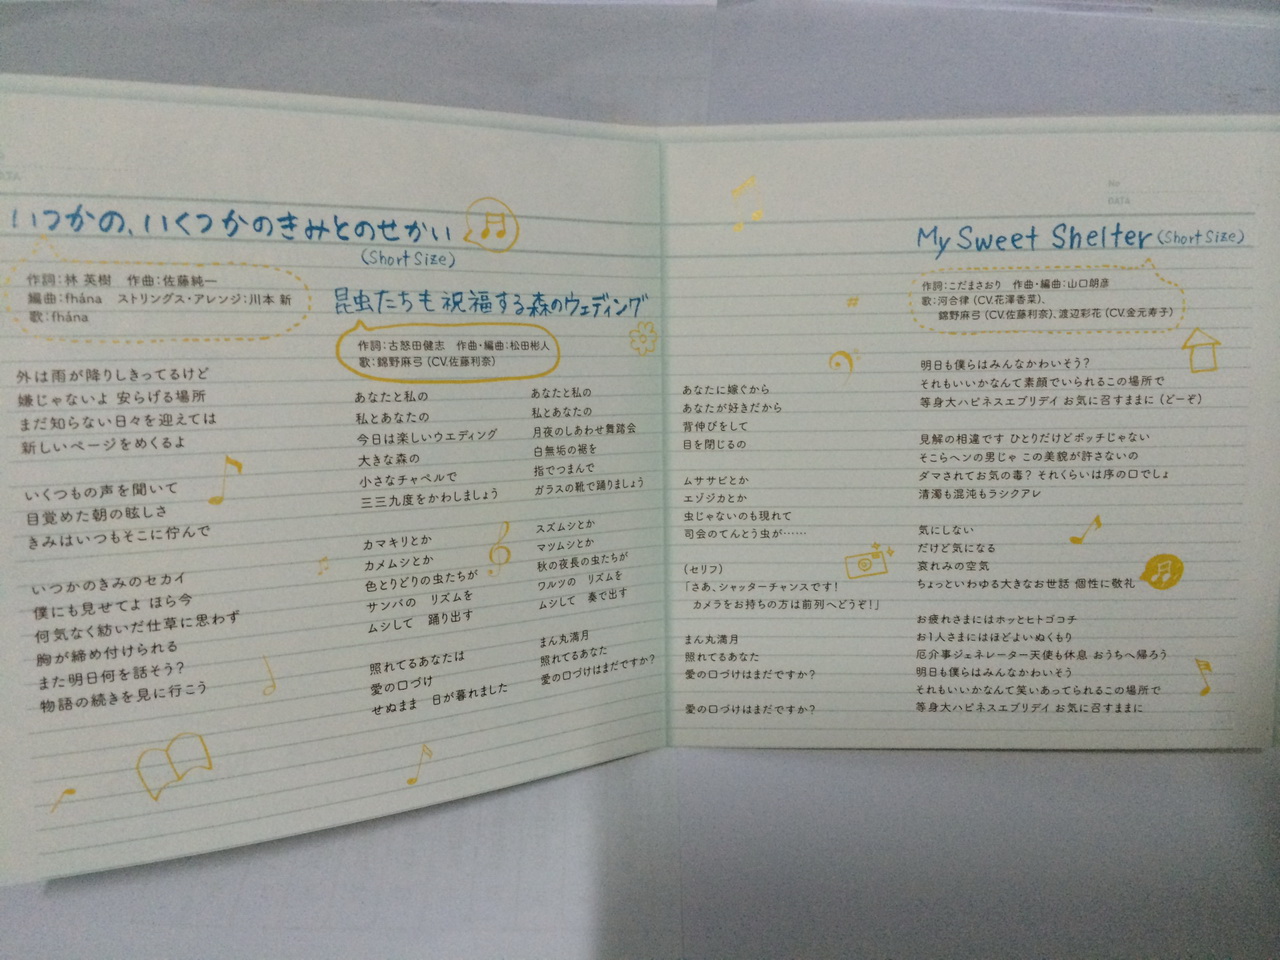 いつかの、いくつかのきみとのせかい
(Short Size)
作詞：林 英樹　作曲：佐藤純一
編曲：fhána　ストリングス・アレンジ：川本 新
歌：fhána
外は雨が降りしきってるけど
嫌じゃないよ 安らげる場所
まだ知らない日々を迎えては
新しいページをめくるよ
いくつもの声を聞いて
目覚めた朝の眩しさ
きみはいつもそこに佇んで
いつかのきみのセカイ
僕にも見せてよ ほら今
何気なく紡いだ仕草に思わず
胸が締め付けられる
また明日何を話そう？
物語の続きを見に行こう
昆虫たちも祝福する森のウェディング
作詞：古怒田健志　作曲・編曲：松田彬人
歌：錦野麻弓（CV.佐藤利奈）
あなたと私の
私とあなたの
今日は楽しいウエディング
大きな森の
小さなチャペルで
三三九度をかわしましょう
カマキリとか
カメムシとか
色とりどりの虫たちが
サンバの　リズムを
ムシして　踊り出す
照れてるあなたは
愛の口づけ
せぬまま　日が暮れました
あなたと私の
私とあなたの
月夜のしあわせ舞踏会
白無垢の裾を
指でつまんで
ガラスの靴で踊りましょう
スズムシとか
マツムシとか
秋の夜長の虫たちが
ワルツの　リズムを
ムシして　奏で出す
まん丸満月
照れてるあなた
愛の口づけはまだですか？
あなたに嫁ぐから
あなたが好きだから
背伸びをして
目を閉じるの
ムササビとか
エゾジカとか
虫じゃないのも現れて
司会のてんとう虫が……
（セリフ）
「さあ、シャッターチャンスです！
カメラをお持ちの方は前列へどうぞ！」
まん丸満月
照れてるあなた
愛の口づけはまだですか？
愛の口づけはまだですか？
No
DATA
My Sweet Shelter (Short Size)
作詞：こだまさおり　作曲・編曲：山口朗彦
歌：河合律（CV.花澤香菜）、
錦野麻弓（CV.佐藤利奈）、渡辺彩花（CV.金元寿子）
明日も僕らはみんなかわいそう？
それもいいかなんて素顔でいられるこの場所で
等身大ハピネスエブリデイ お気に召すままに（どーぞ）
見解の相違です ひとりだけどボッチじゃない
そこらヘンの男じゃ この美貌が許さないの
ダマされてお気の毒？ それくらいは序の口でしょ
清濁も混沌もラシクアレ
気にしない
だけど気になる
哀れみの空気
ちょっといわゆる大きなお世話 個性に敬礼
お疲れさまにはホッとヒトゴコチ
お1人さまにはほどよいぬくもり
厄介事ジェネレーター天使も休息 おうちへ帰ろう
明日も僕らはみんなかわいそう
それもいいかなんて笑いあってられるこの場所で
等身大ハピネスエブリデイ お気に召すままに